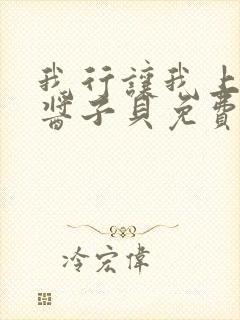 我行讓我上
醬子貝免費
冷宏偉